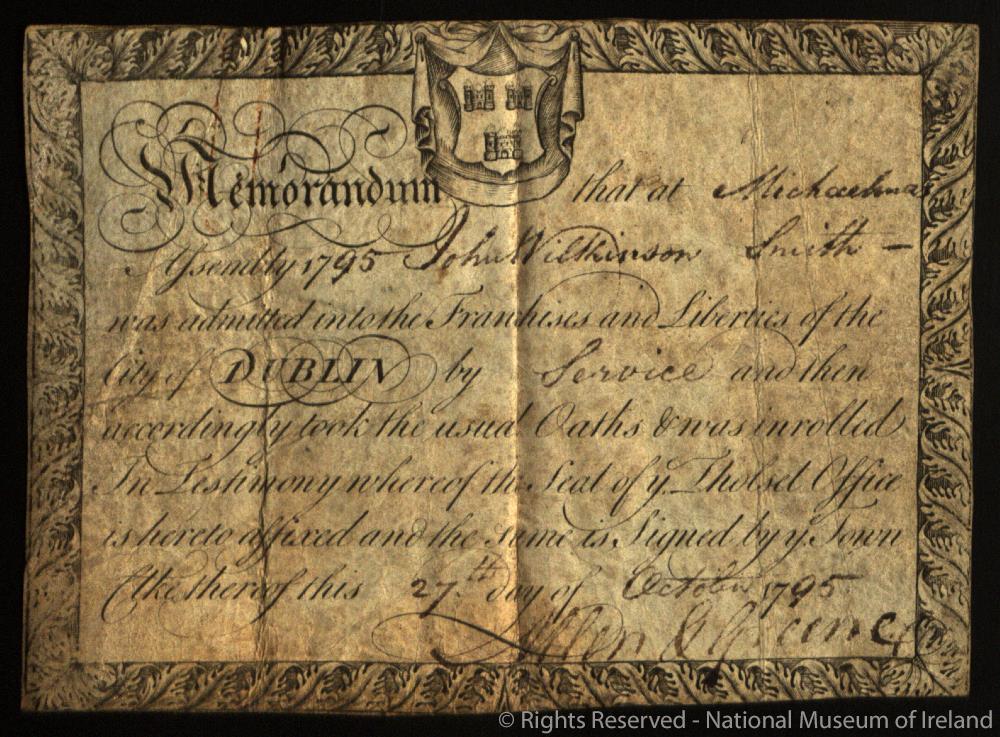 Memorandum that at Michaelmas
Assembly 1795 John Wilkinson Smith —
was admitted into the Franchises and Liberties of the
City of DUBLIN by Service and then
accordingly took the usual Oaths & was inrolled
In Testimony whereof the Seal of y. Tholsel Office
is hereto affixed and the same is Signed by y. Town
Clks thereof this 27th day of October 1795
Allen & Greene
© Rights Reserved - National Museum of Ireland